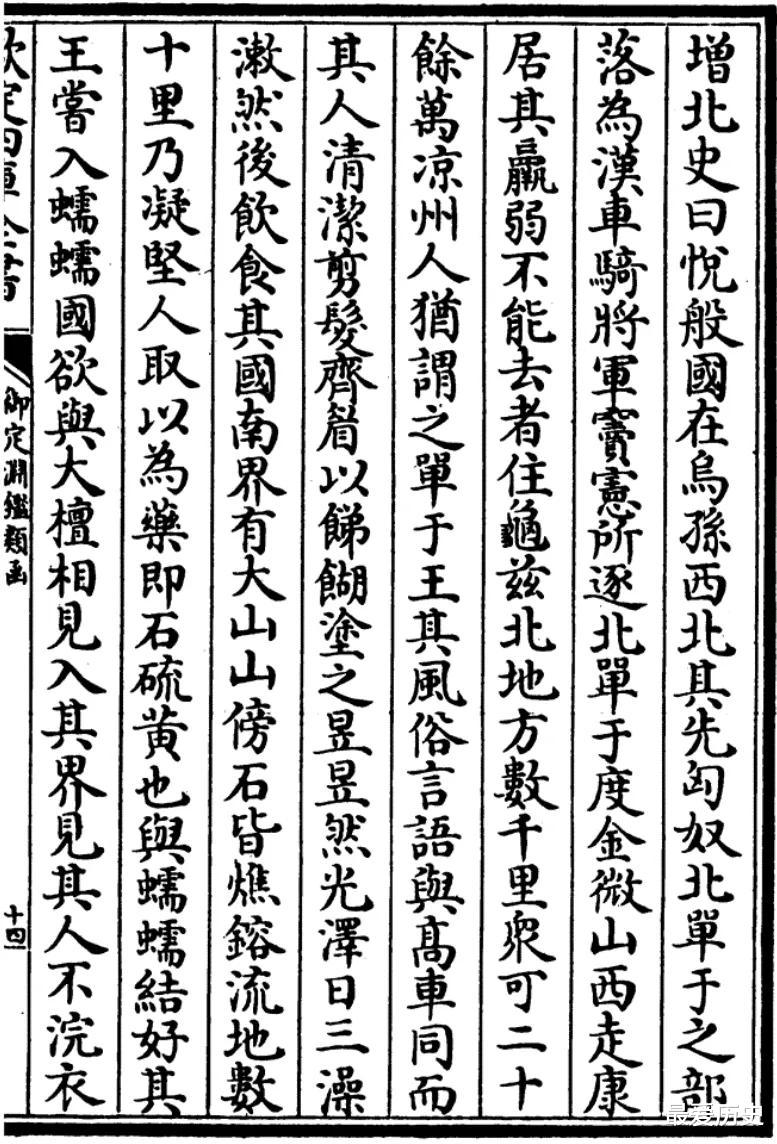 增北史曰悅般國在烏孫西北其先匈奴北單于之部
落為漢車騎將軍竇憲所逐北單于度金微山西走康
居其羸弱不能去者住龜茲北地方數千里衆可二十
餘萬凉州人猶謂之單于王其風俗言語與髙車同而
其人清潔剪髮齊眉以餙餬塗之昱昱然光澤日三澡
漱然後飲食其國南界有大山山傍石皆燋鎔流地數
十里乃凝堅人取以為藥即石硫黄也與蠕蠕結好其
王嘗入蠕蠕國欲與大檀相見入其界見其人不浣衣
欽定四庫全書
御定淵鑑類函
十四
最爱历史